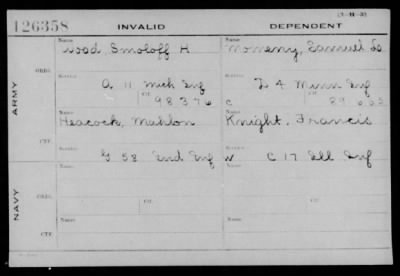 126358
INVALID
DEPENDENT
ARMY
ORIG.
Name
Wood, Smoloff H
Service
A 11 Mich Inf
Ctf.
98376
Name
Momeny, Samuel
Service
I 4 Minn Inf
Ctf.
C
CTF.
Name
Heacock, Mahlon
Service
G 58 Ind Inf
Name
Knight, Francis
Service
W
C 17 Ill Inf
NAVY
ORIG.
Name
Service
Ctf.
Name
Service
Ctf.
CTF.
Name
Service
Name
Service